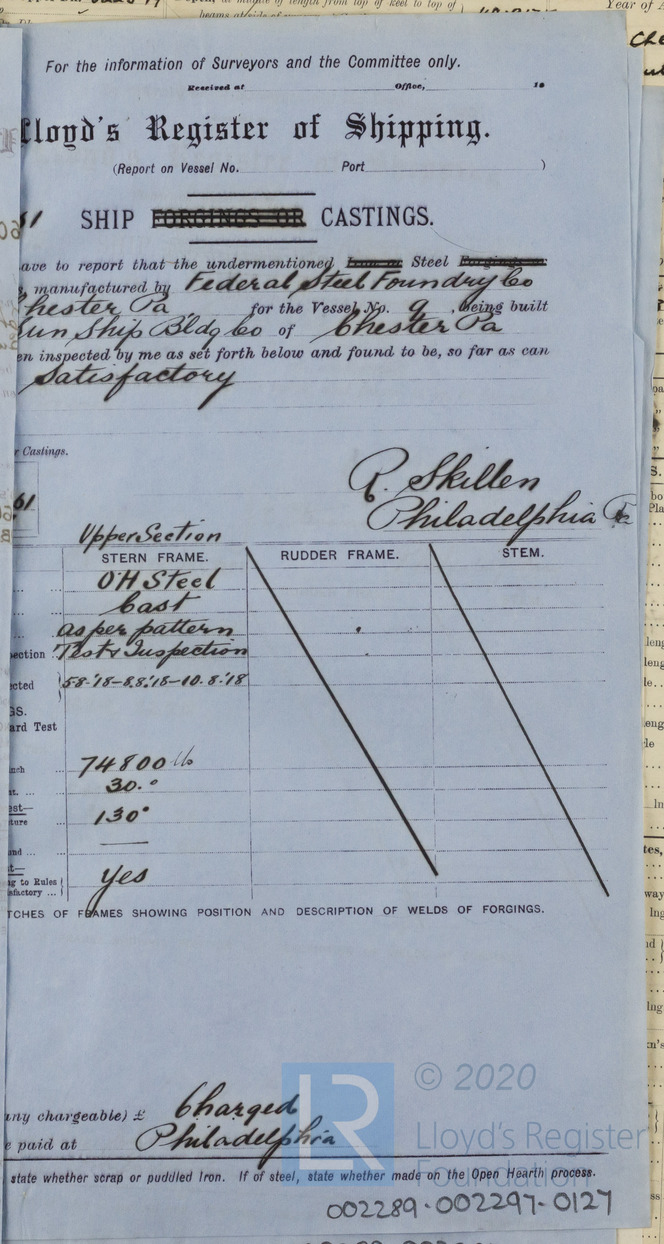 For the information of Surveyors and the Committee only.
Received at Office, 18
Lloyd's Register of Shipping.
(Report on Vessel No. Port )
SHIP FORGINGS OR CASTINGS.
ave to report that the undermentioned Iron or Steel Forgings or
s, manufactured by Federal Steel Foundry Co
hester Pa for the Vessel No. 9, being built
Sun Ship Bldg Co of Chester Pa
en inspected by me as set forth below and found to be, so far as can
Satisfactory
r Castings.
R. Skillen
61
Philadelphia Pa
Upper Section
STERN FRAME. RUDDER FRAME. STEM.
OH Steel
Cast
as per pattern
ection Test & Inspection
cted 5-8-'18-8.8.'18-10.8.'18
GS.
ard Test
nch 74800 lb
at. 30.°
est—
ture 130°
und
t—
ng to Rules
sfactory yes
TCHES OF FRAMES SHOWING POSITION AND DESCRIPTION OF WELDS OF FORGINGS.
© 2020
any chargeable) £ Charged
e paid at Philadelphia
LR
Lloyd's Register
Foundation
state whether scrap or puddled Iron. If of steel, state whether made on the Open Hearth process.
002289-002297-0127